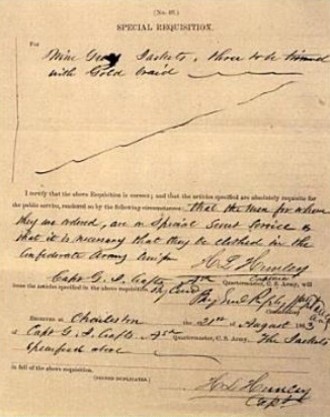 (No. 40.)
SPECIAL REQUISITION.
For
Nine Grey Jackets, three to be trimmed
with Gold braid
I certify that the above Requisition is correct; and that the articles specified are absolutely requisite for
the public service, rendered so by the following circumstances: that the men for whom
they are ordered, are on Special Secret Service &
that it is necessary that they be clothed in the
Confederate Army
H L Hunley
Capt G. I. Crafts Quartermaster, C. S. Army, will
issue the articles specified in the above requisition.
Received at Charleston the 21st of August 1863
of Capt G. I. Crafts Quartermaster, C. S. Army, The Jackets
specified above
in full of the above requisition.
(SIGNED DUPLICATES.)
H. L. Hunley
Capt